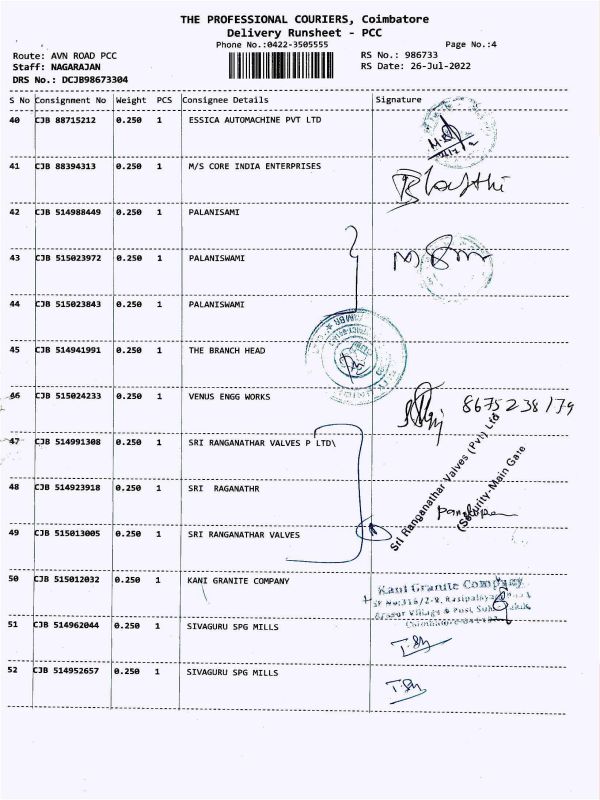 THE PROFESSIONAL COURIERS, Coimbatore
Delivery Runsheet - PCC
Phone No.:0422-3505555 Page No.:4
Route: AVN ROAD PCC RS No.: 986733
Staff: NAGARAJAN RS Date: 26-Jul-2022
DRS No.: DCJB98673304
S No Consignment No Weight PCS Consignee Details Signature
40 CJB 88715212 0.250 1 ESSICA AUTOMACHINE PVT LTD
41 CJB 88394313 0.250 1 M/S CORE INDIA ENTERPRISES
42 CJB 514988449 0.250 1 PALANISAMI
43 CJB 515023972 0.250 1 PALANISWAMI
44 CJB 515023843 0.250 1 PALANISWAMI
45 CJB 514941991 0.250 1 THE BRANCH HEAD
46 CJB 515024233 0.250 1 VENUS ENGG WORKS 8675238179
47 CJB 514991308 0.250 1 SRI RANGANATHAR VALVES P LTD\
48 CJB 514923918 0.250 1 SRI RAGANATHR
49 CJB 515013005 0.250 1 SRI RANGANATHAR VALVES
Sri Ranganathar Valves (Pvt) Ltd
(Security-Main Gate
50 CJB 515012032 0.250 1 KANI GRANITE COMPANY
Kani Granite Company
51 CJB 514962044 0.250 1 SIVAGURU SPG MILLS
52 CJB 514952657 0.250 1 SIVAGURU SPG MILLS